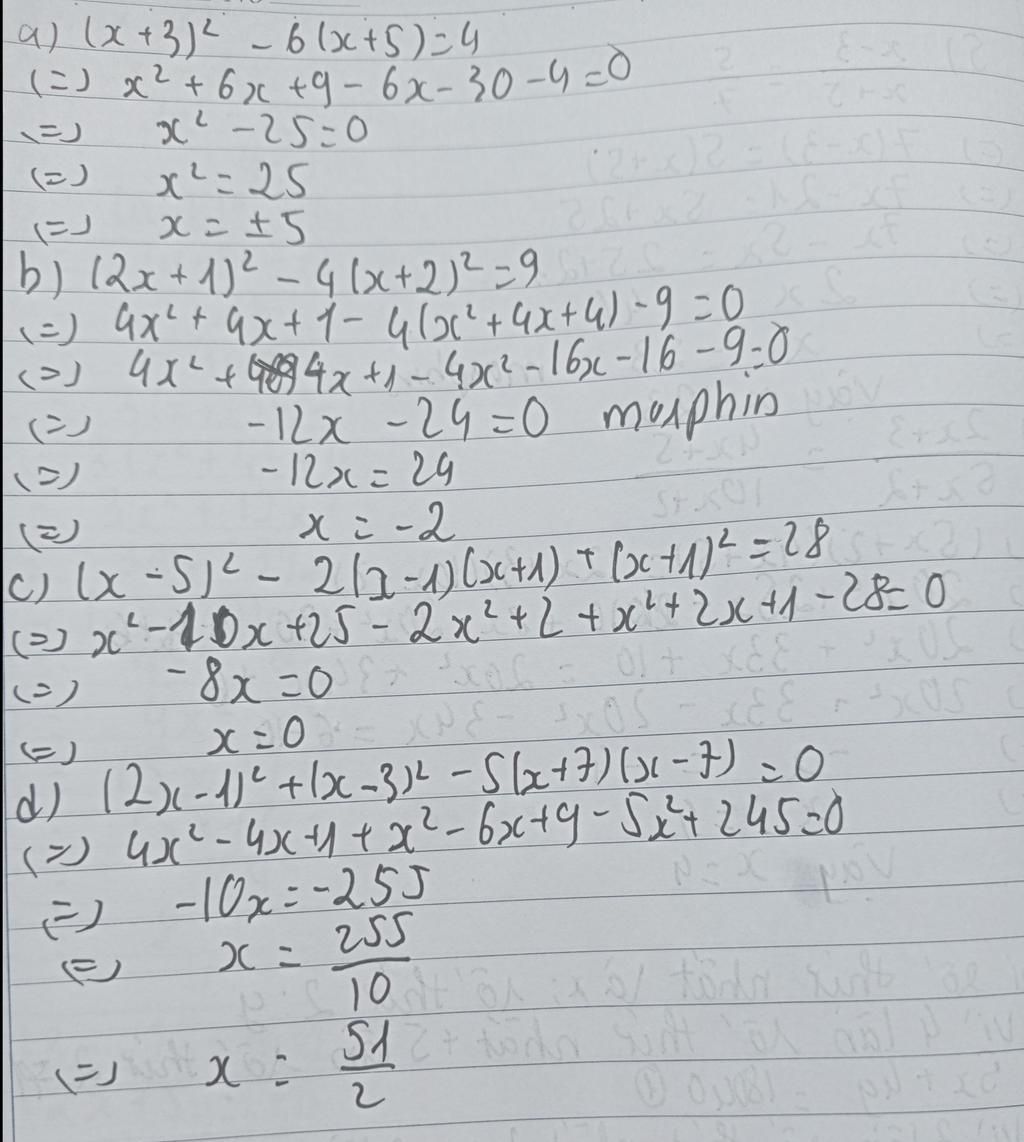 a) (x+3)² - 6(x+5)=4
(=) x² + 6x + 9 - 6x - 30 - 4 = 0
(=) x² - 25 = 0
(=) x² = 25
(=) x = ±5
b) (2x+1)² - 4(x+2)² = 9
(=) 4x² + 4x + 1 - 4(x² + 4x + 4) - 9 = 0
(=) 4x² + 4x + 1 - 4x² - 16x - 16 - 9 = 0
(=) -12x - 24 = 0 morphin
(=) -12x = 24
(=) x = -2
c) (x - 5)² - 2(x-1)(x+1) + (x+1)² = 28
(=) x² - 10x + 25 - 2x² + 2 + x² + 2x + 1 - 28 = 0
(=) -8x = 0
(=) x = 0
d) (2x-1)² + (x-3)² - 5(x+7)(x-7) = 0
(=) 4x² - 4x + 1 + x² - 6x + 9 - 5x² + 245 = 0
(=) -10x = -255
(=) x = 255/10
(=) x = 51/2